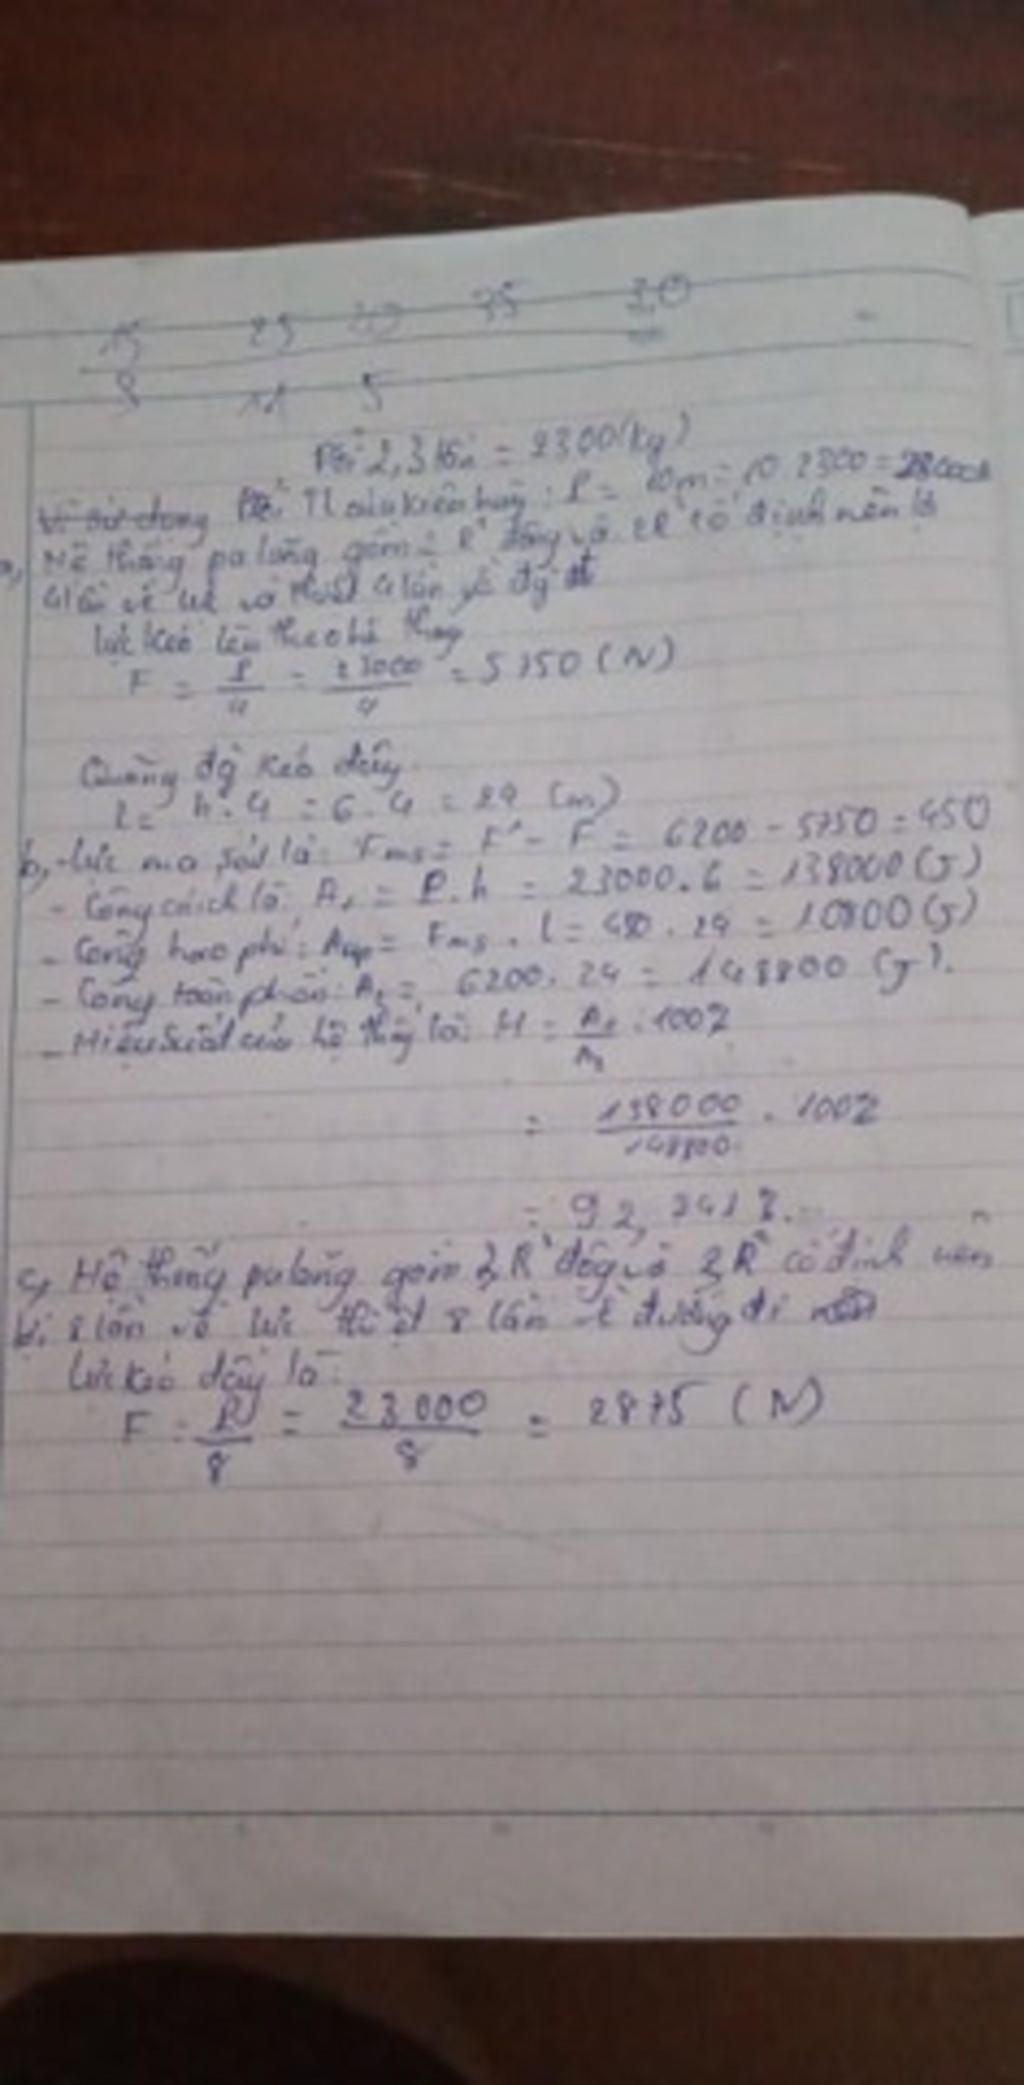 15 25 20 35 30
8 11 5
Đổi 2,3 tấn = 2300 (kg)
Vì sử dụng : P = 10m = 10.2300 = 23000
a, Hệ thống pa lăng gồm 2 R² động và 2R² cố định nên lợi
4 lần về lực và thiệt 4 lần về đg đi
lực kéo lên theo hệ thống
F = P/4 = 23000/4 = 5750 (N)
Quãng đg kéo dây
l = h.4 = 6.4 = 24 (m)
b, - lực ma sát là: Fms = F' - F = 6200 - 5750 = 450
- Công có ích là: A₁ = P.h = 23000.6 = 138000 (J)
- Công hao phí: Ahp = Fms . l = 450 . 24 = 10800 (J)
- Công toàn phần: A₂ = 6200. 24 = 148800 (J).
- Hiệu suất của hệ thống là: H = A₁/A₂ . 100%
= 138000/148800 . 100%
= 92, 741 %.
c, Hệ thống palăng gồm R² động và R² cố định nên
lợi 8 lần về lực thiệt 8 lần về đường đi
Lực kéo dây là:
F = P/8 = 23000/8 = 2875 (N)